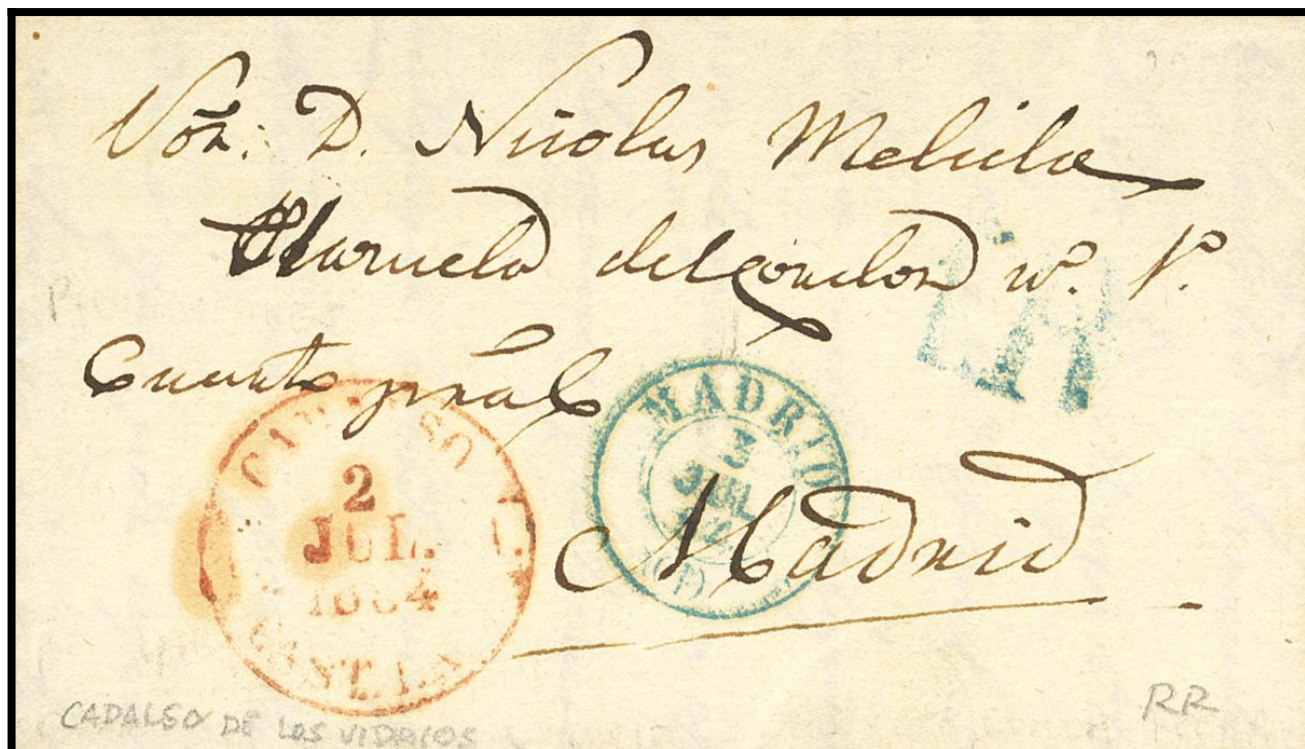 Sor. D. Nicolas Melida
Plazuela del Cordon nº. 1º.
Cuarto pral
Madrid
CADALSO
2
JUL.
1854
CAST. L.N
MADRID
3
JUL
CADALSO DE LOS VIDRIOS
RR